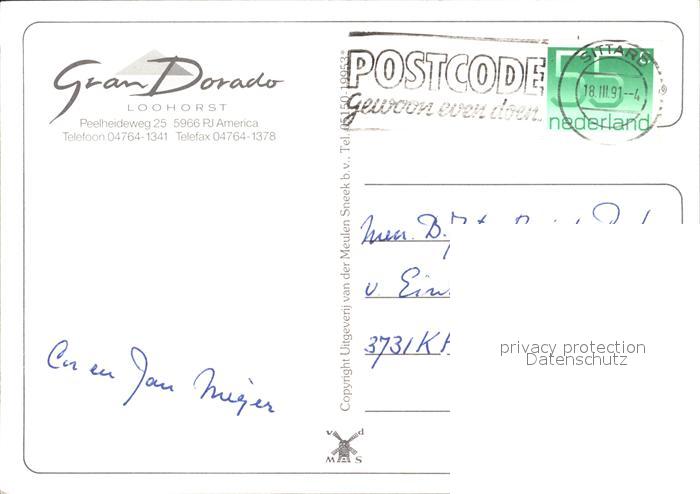 Gran Dorado
LOOHORST
Peelheideweg 25 5966 RJ America
Telefoon 04764-1341 Telefax 04764-1378
Cor en Jan Meijer
Copyright Uitgeverij van der Meulen Sneek b.v., Tel. 05150-19953*
v d
M A S
POSTCODE
Gewoon even doen.
SITTARD
18.III.91.-4
55
nederland
v. Ein
3731 K
privacy protection
Datenschutz